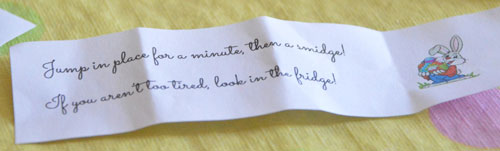 Jump in place for a minute, then a smidge!
If you aren't too tired, look in the fridge!